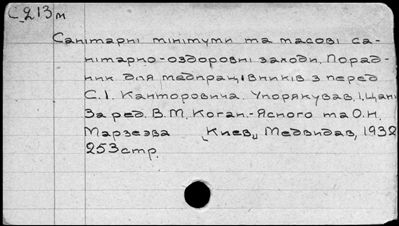 С 213м
Санітарні мінімуми та масові са-
нітарно-оздоровні заходи. Порад-
ник для медпрацівників з перед
С.І. Канторовича. Упорякував. І. Цані
За ред. В.М. Коган.-Ясного та О.Н.
Марзеэва [Киев,] Медвидав, 1932
253 стр.